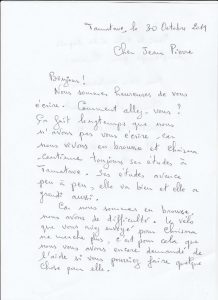 Tamatave, le 30 Octobre 2019
Cher Jean Pierre
Bonjour!
Nous sommes heureuses de vous
écrire. Comment allez-vous?
Ça fait longtemps que nous
n'avons pas vous écrire, car
nous vivons en brousse et
continue toujours ses études à
Tamatave. Ses études avance
peu à peu, elle va bien et elle a
grandi aussi.
Car nous sommes en brousse,
nous avons de difficulté: le vélo
que vous avez envoyé pour
ne marche plus, c'est pour cela que
nous vous avons encore demandé de
l'aide si vous pouviez faire quelque
chose pour elle.